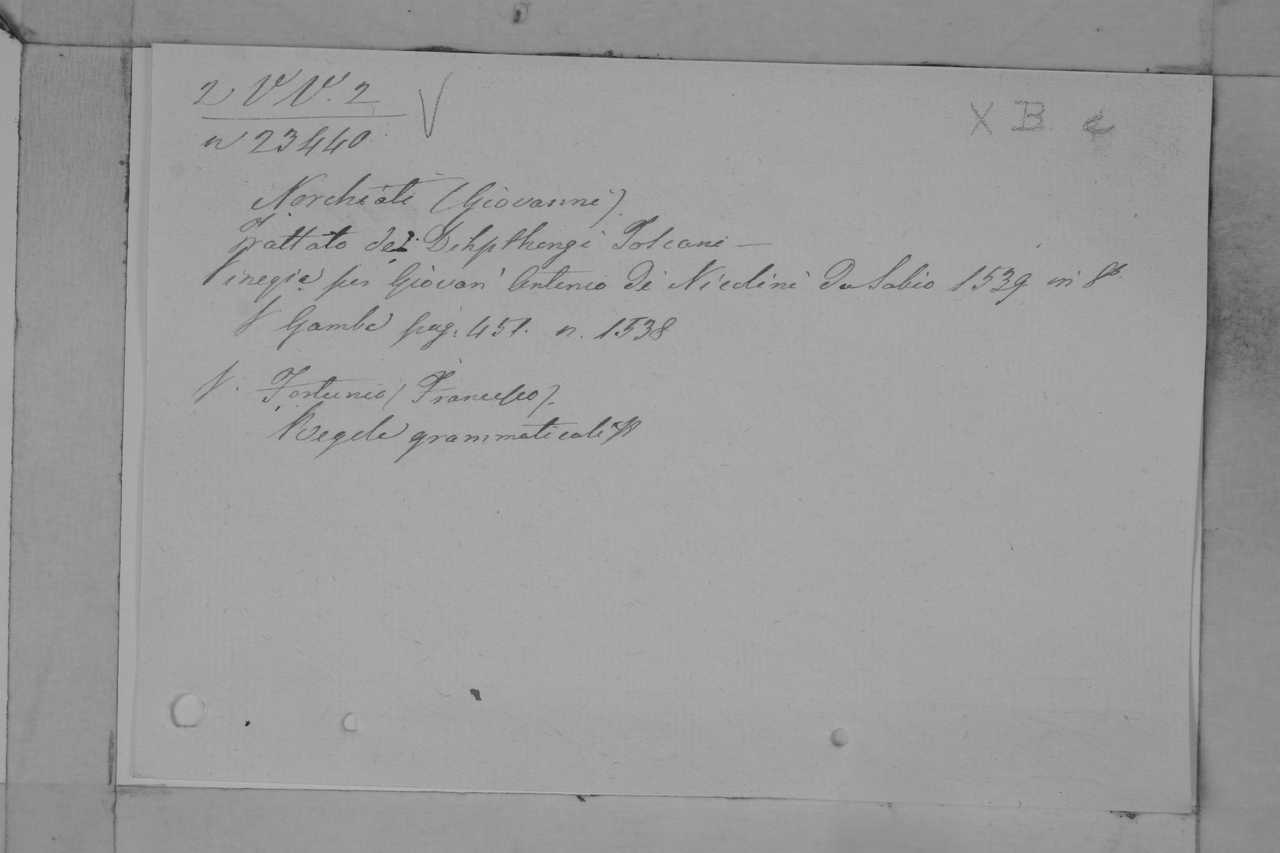 2 VV. 2 V
n 23440
X B e
Norchiati (Giovanni)
Trattato dei Dihpthongi Toscani —
Vinegia per Giovan Antonio di Nicolini da Sabio 1539 in 8º
V Gamba pag. 451. n. 1538
V. Fortunio (Francesco).
Regole grammaticali